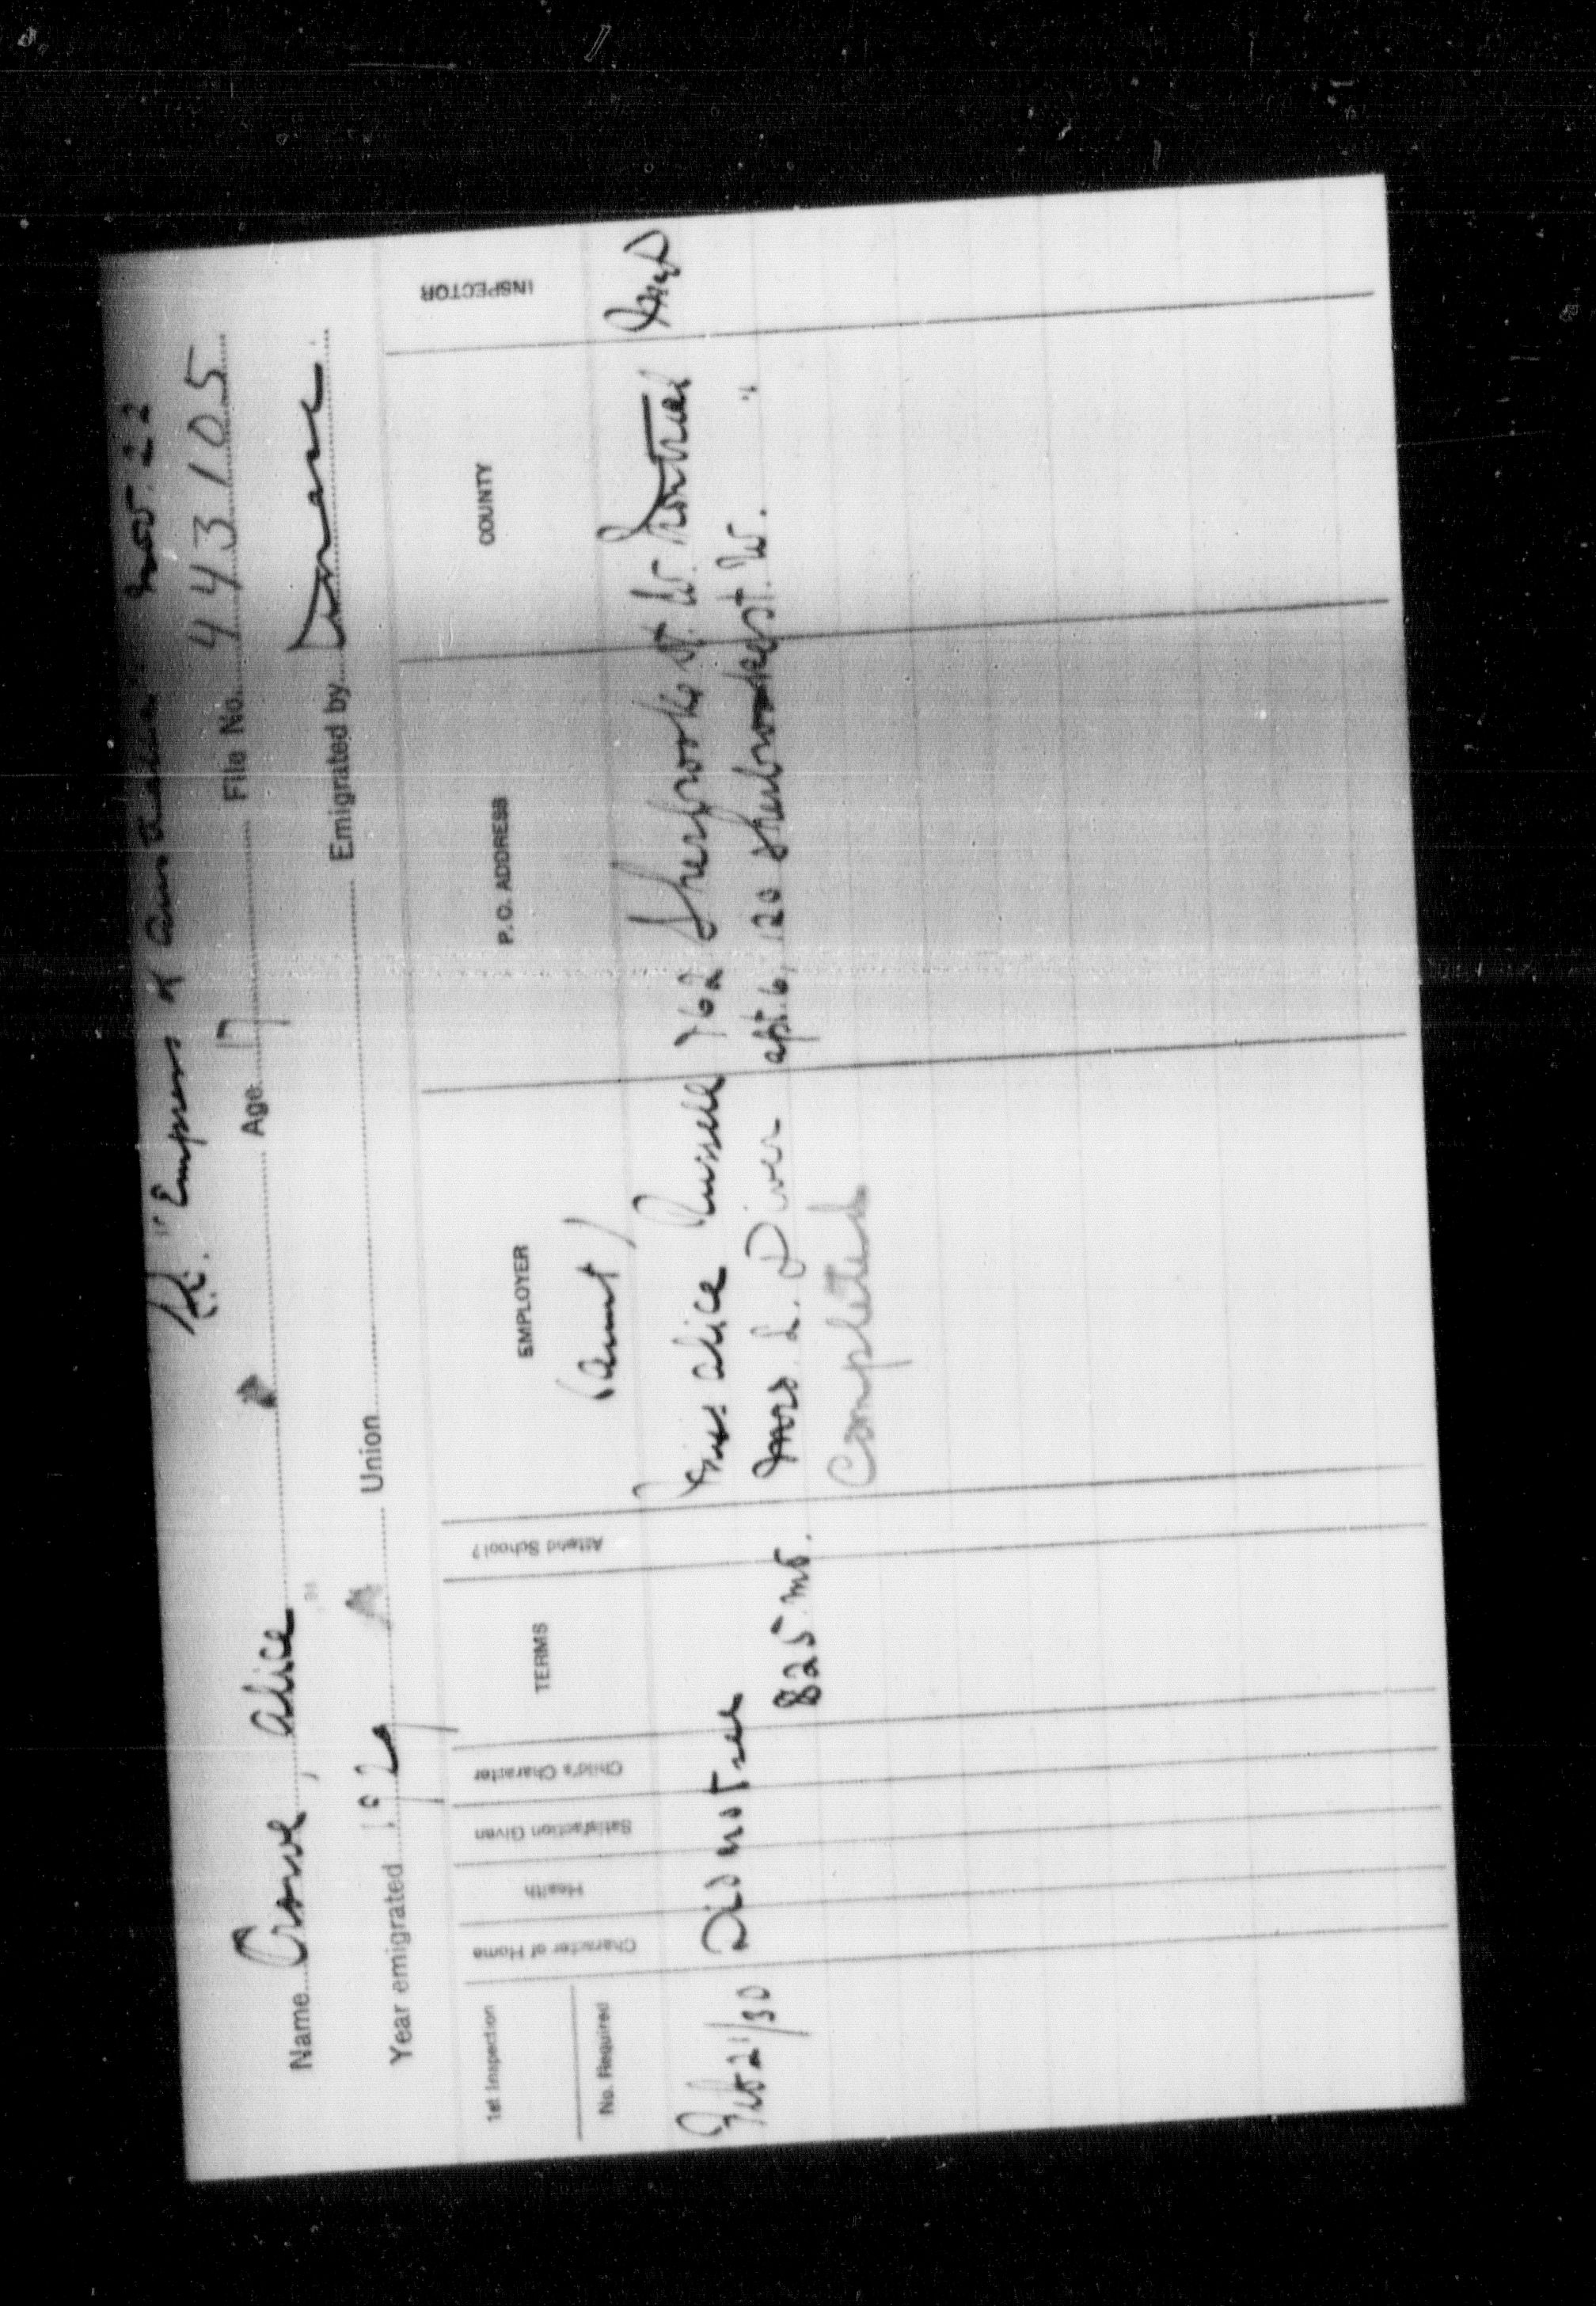 SS. "Empress of Australia" Nov. 22
Name Crowe, Alice Age 17 File No. 443105
Year emigrated 1929 Union Emigrated by
1st Inspection
No. Required
Character of Home
Health
Satisfaction Given
Child's Character
TERMS
Attend School?
EMPLOYER
P.O. ADDRESS
COUNTY
INSPECTOR
(Aunt)
Feb 21/30 Did not see Miss Alice Russell 762 Sherbrooke St. W. Montreal
$25 mo. Mrs. L. Diver apt. 6, 120 Sherbrooke St. W. "
Completed